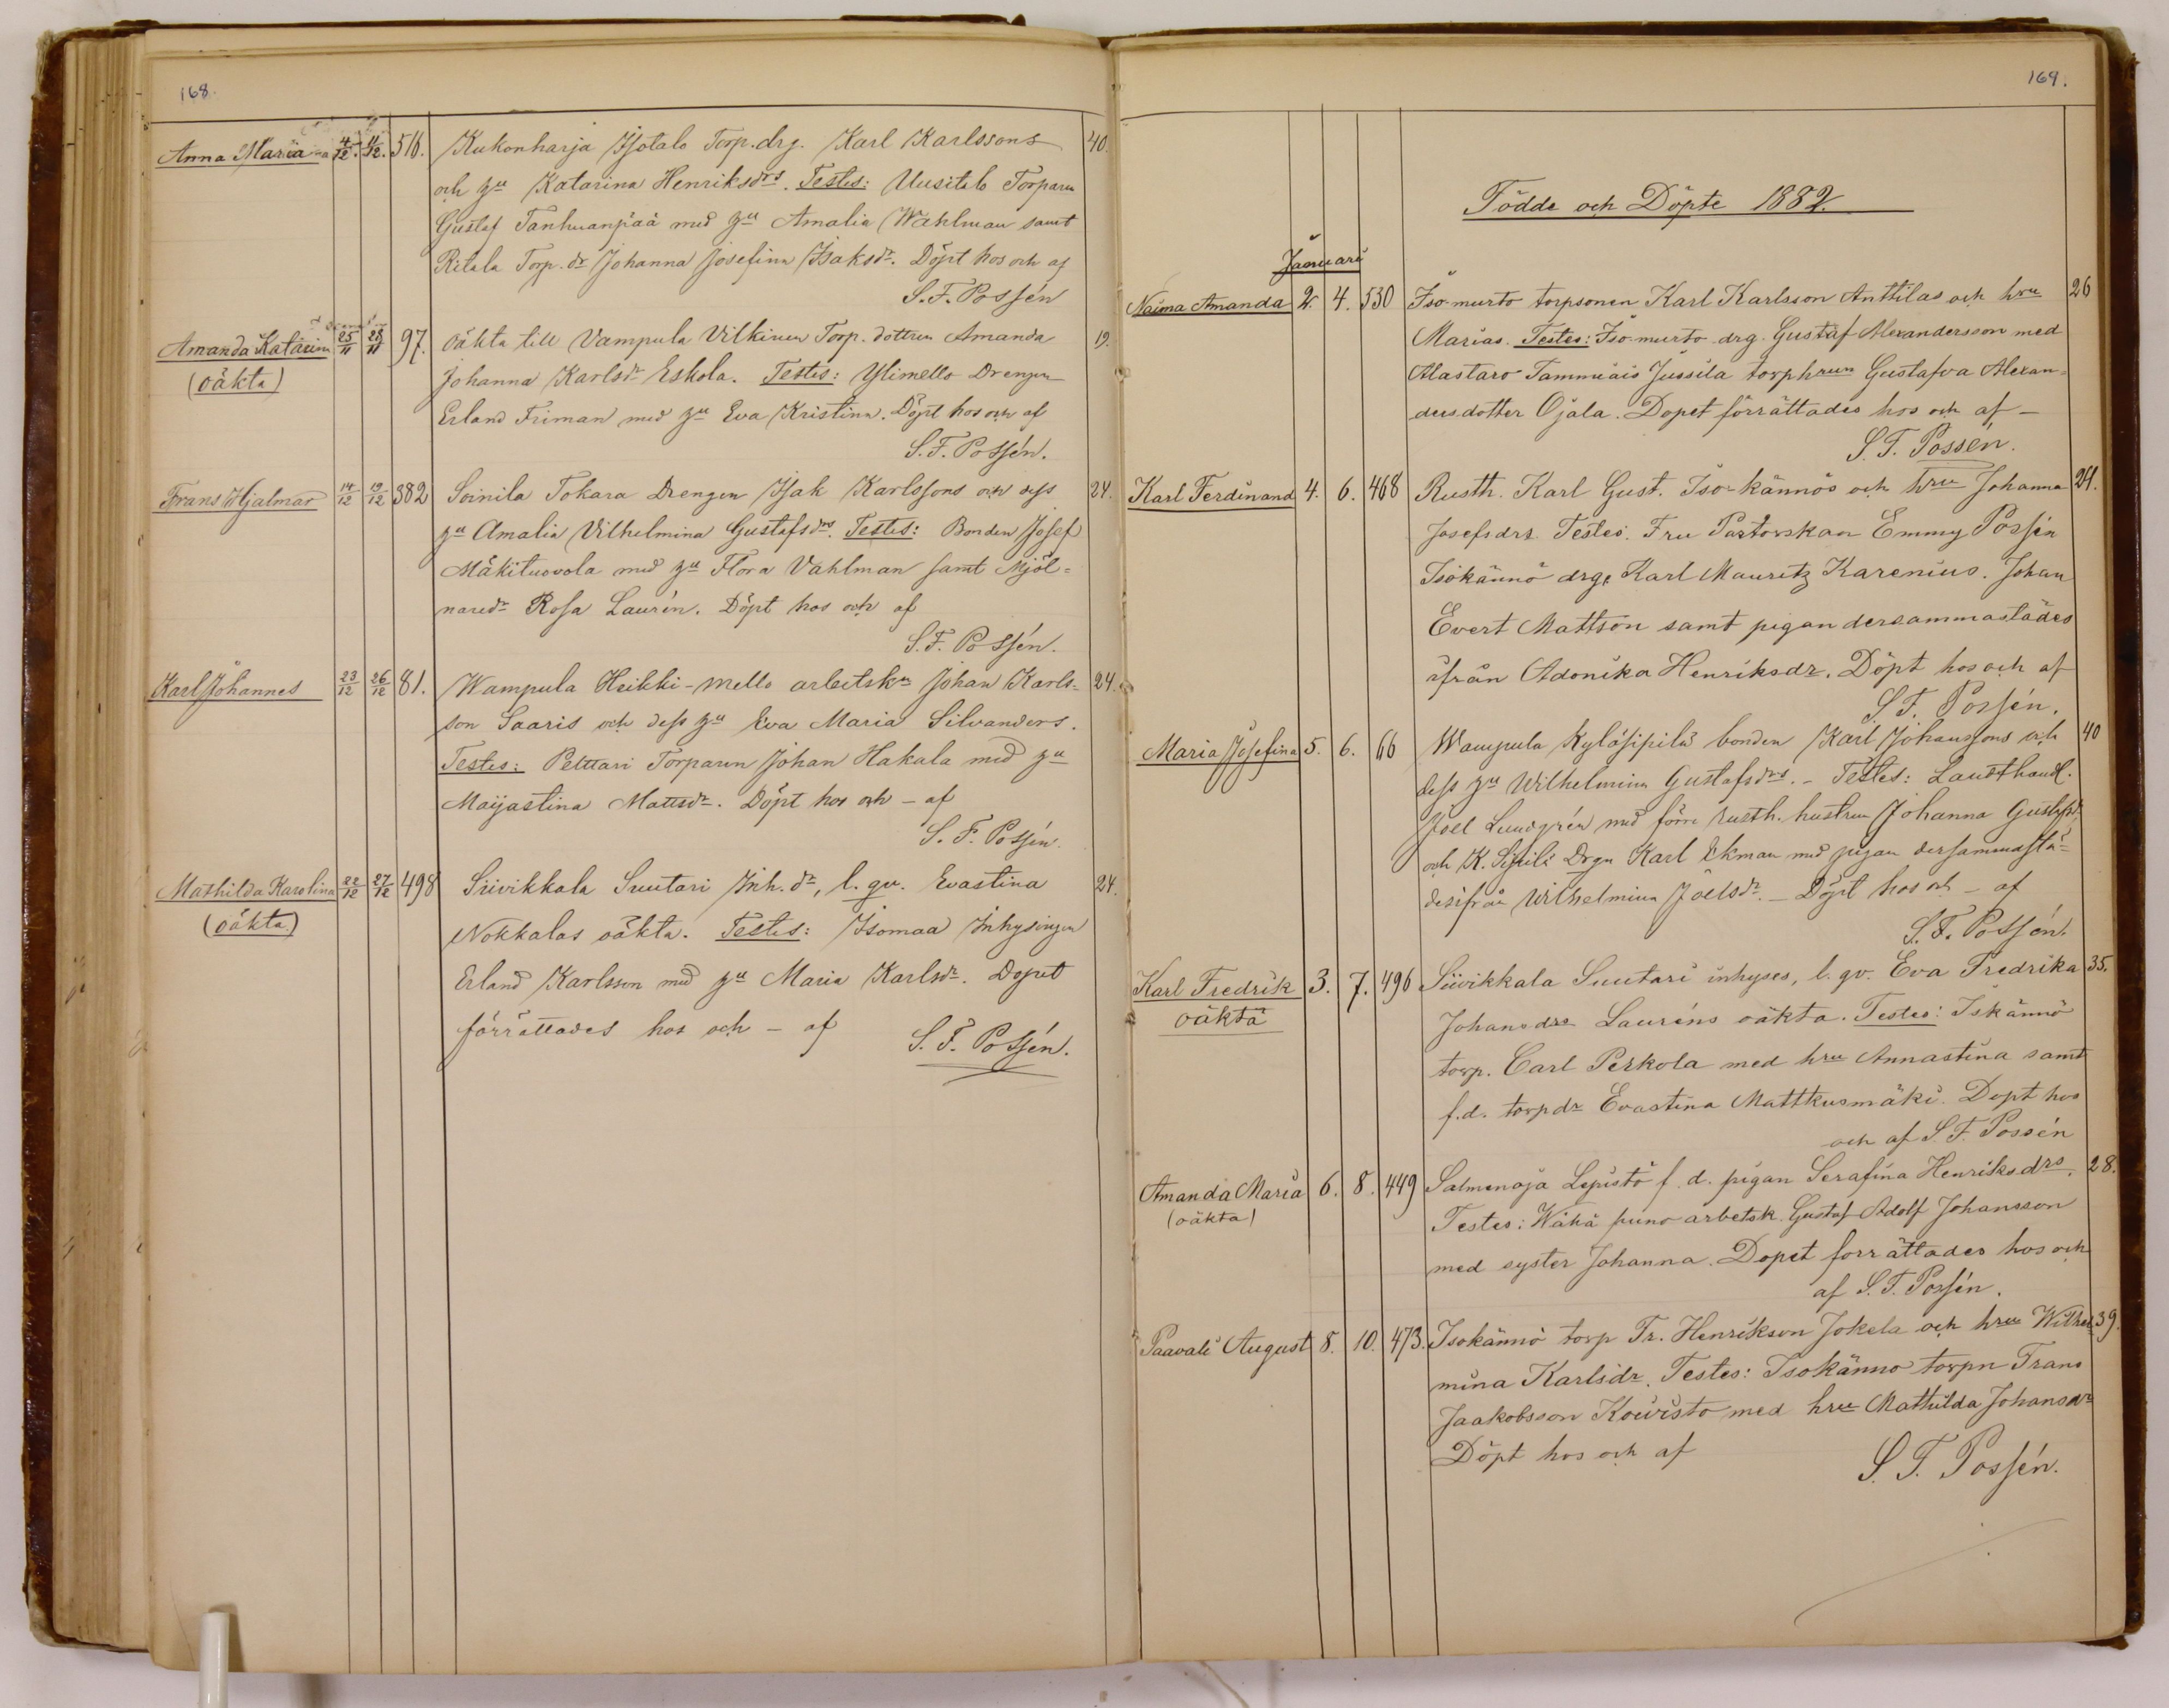 168.
Anna Maria 4/12. 11/12. 516. Kukonharja Isotalo Torp.drg. Karl Karlssons 40.
och hu Katarina Henriksdrs. Testes: Uusitalo Torparen
Gustaf Tanhuanpää med hu Amalia Wahlman samt
Ritala Torp. dr Johanna Josefina Isaksdr. Döpt hos och af
S. F. Possén
Amanda Katarina 25/11 28/11 97. Oäkta till Vampula Vilkinen Torp. dottren Amanda 19.
(oäkta) Johanna Karlsdr Eskola. Testes: Ylimello Drengen
Erland Friman med hu Eva Kristina. Döpt hos och af
S. F. Possén.
Frans Hjalmar 14/12 19/12 382 Soinila Tokara Drengen Isak Karlssons och dess 24.
hu Amalia Vilhelmina Gustafsdrs. Testes: Bonden Josef
Mäkituovola med hu Flora Vahlman samt Mjöl=
naredr Rosa Laurén. Döpt hos och af
S. F. Possén.
Karl Johannes 23/12 26/12 81. Wampula Heikki-Mello arbetskn Johan Karls= 24.
son Saaris och dess hu Eva Maria Silvanders.
Testes: Pelttari Torparen Johan Hakala med hu
Maijastina Mattsdr. Döpt hos och - af
S. F. Possén.
Mathilda Karolina 22/12 27/12 498 Siivikkala Suutari Inh. dr, l. qv. Evastina 24.
(oäkta) Nokkalas oäkta. Testes: Isomaa Inhysingen
Erland Karlsson med hu Maria Karlsdr. Dopet
förrättades hos och - af
S. F. Possén.
169.
Födde och Döpte 1882.
Januari
Naima Amanda 2. 4. 530 Iso-murto torpsonen Karl Karlsson Anttilas och hru 26
Marias. Testes: Iso-murto drg. Gustaf Alexandersson med
Alastaro Tammiais Jussila torphrun Gustafva Alexan=
dersdotter Ojala. Dopet förrättades hos och af -
S. F. Possén.
Karl Ferdinand 4. 6. 468 Rusth. Karl Gust. Iso-kännös och hru Johanna 24.
Josefsdrs Testes. Fru Pastorskan Emmy Possén
Isokännö drg. Karl Mauritz Karenius. Johan
Evert Mattson samt pigan dersammastädes
ifrån Adonika Henriksdr. Döpt hos och af
S. F. Possén.
Maria Josefina 5. 6. 66 Wampula Kyläsipilä bonden Karl Johanssons och 40
dess hu Wilhelmina Gustafsdrs. - Testes: Landthandl.
Joel Lundgrén med förre rusth. hustrun Johanna Gustafsdr
och K. Sipilä Drgn Karl Ekman med pigan dersammastä=
desifrån Wilhelmina Joelsdr. - Döpt hos och - af
S. F. Possén.
Karl Fredrik 3. 7. 496 Siivikkala Suutari inhyses, l. qv. Eva Fredrika 35.
oäkta Johansdrs Lauréns oäkta. Testes: Iskännö
torp. Carl Perkola med hru Annastina samt
f.d. torpdr Evastina Mattkusmäki. Döpt hos
och af S. F. Possén
Amanda Maria 6. 8. 449 Salmenoja Lepistö f. d. pigan Serafina Henriksdrs. 28.
(oäkta) Testes: Wähä puno arbetsk. Gustaf Adolf Johansson
med syster Johanna. Dopet forrättades hos och
af S. F. Possén.
Paavali August 8. 10. 473. Isokännö torp Fr. Henrikson Jokela och hru Wilhel= 39.
mina Karlsdr. Testes: Isokänno torpn Frans
Jaakobsson Koivisto med hru Mathilda Johansdr
Döpt hos och af
S. F. Possén.